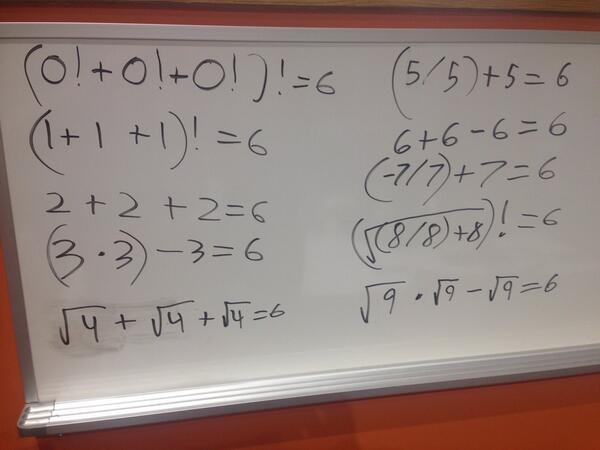 (0!+0!+0!)!=6
(1+1+1)!=6
2+2+2=6
(3·3)-3=6
√4+√4+√4=6
(5/5)+5=6
6+6-6=6
(-7/7)+7=6
(√(8/8)+8)!=6
√9·√9-√9=6